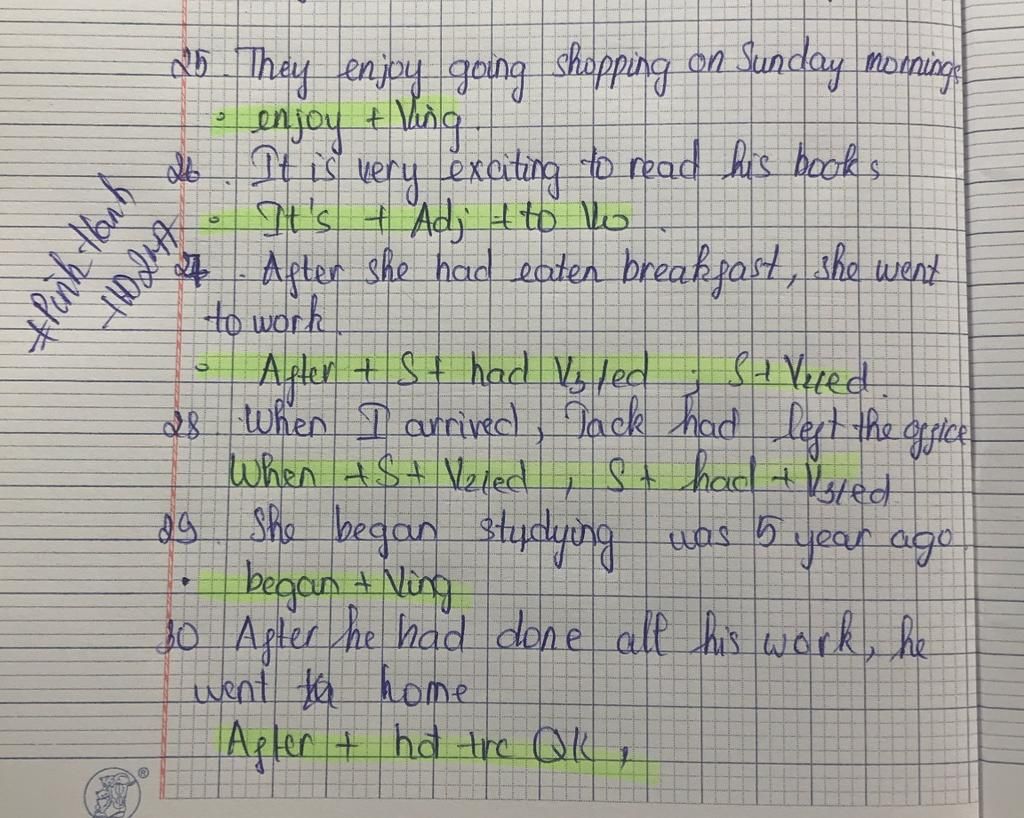 25. They enjoy going shopping on Sunday mornings
• enjoy + Ving.
26. It is very exciting to read his books
• It's + Adj + to Vo.
27. After she had eaten breakfast, she went
to work.
• After + S + had V3/ed, S + V2/ed.
28 When I arrived, Jack had left the office
When + S + V2/ed, S + had + V3/ed
29. She began studying was 5 year ago.
• began + Ving
30 After he had done all his work, he
went home
After + hđ trc QK,